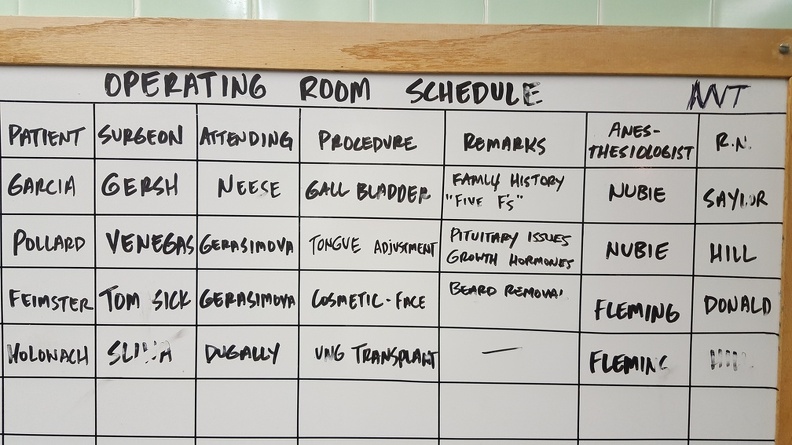 OPERATING ROOM SCHEDULE
PATIENT SURGEON ATTENDING PROCEDURE REMARKS ANES-
THESIOLOGIST R.N.
GARCIA GERSH NEESE GALL BLADDER FAMILY HISTORY
"FIVE F'S" NUBIE SAYLOR
POLLARD VENEGAS GERASIMOVA TONGUE ADJUSTMENT PITUITARY ISSUES
GROWTH HORMONES NUBIE HILL
FEIMSTER TOM SICK GERASIMOVA COSMETIC-FACE BEARD REMOVAL FLEMING DONALD
HOLONACH DUGALLY TRANSPLANT — FLEMING